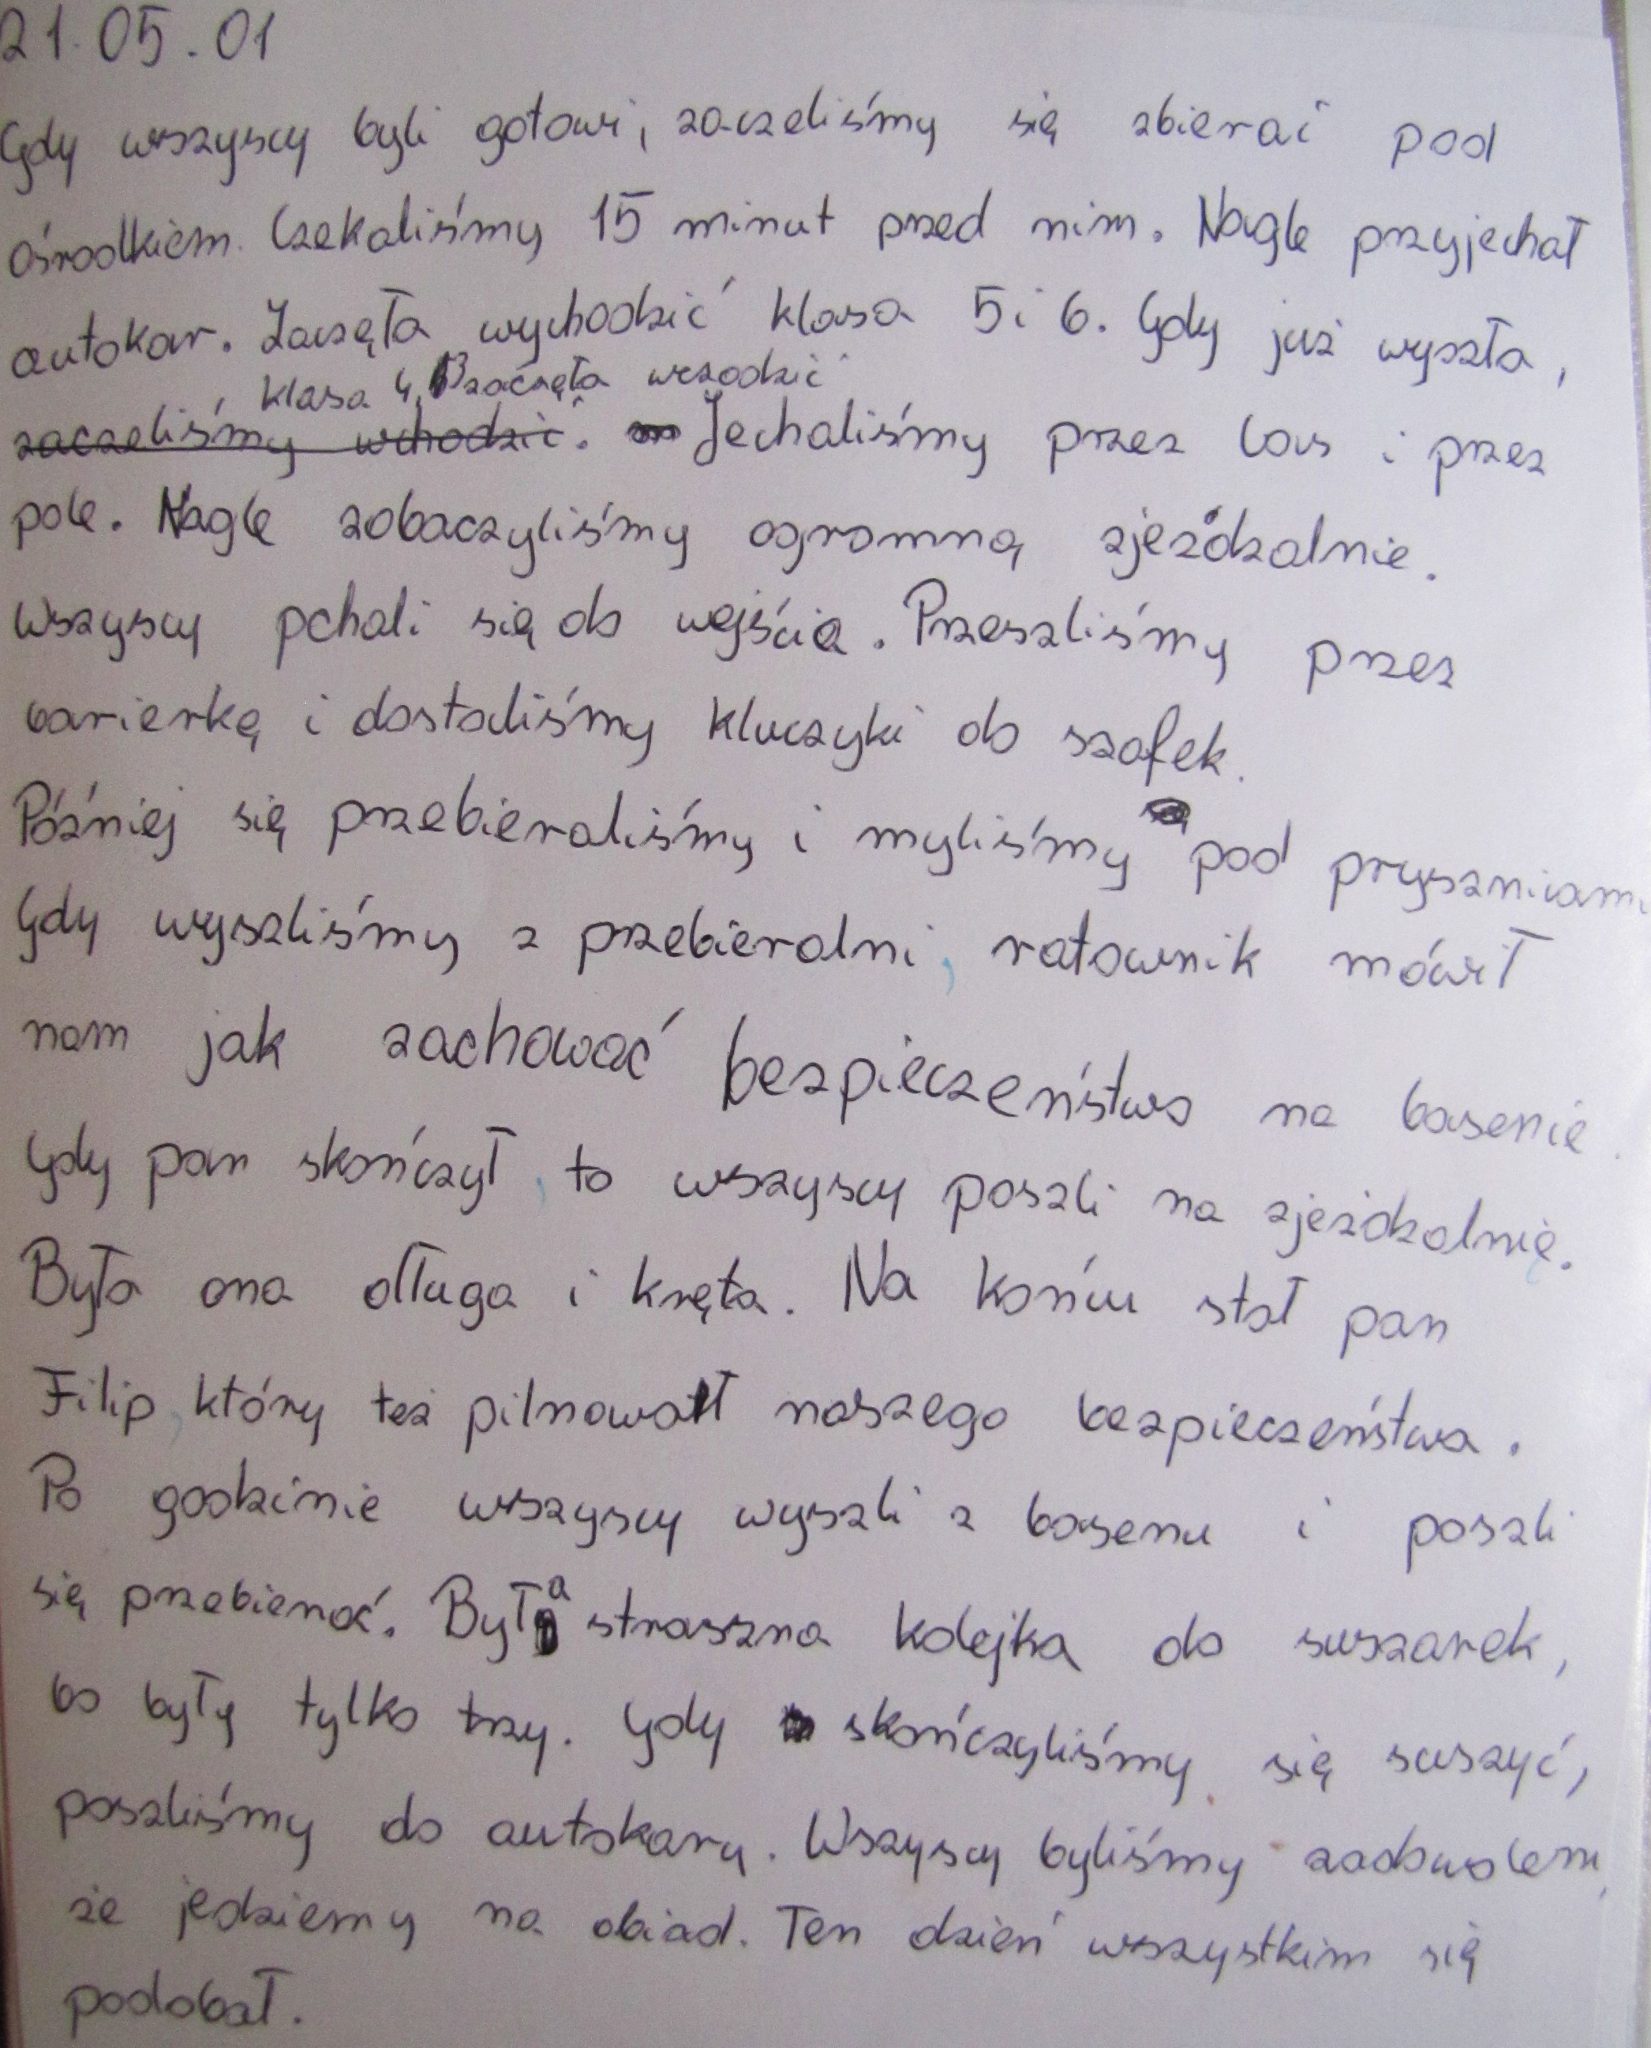 21.05.01
Gdy wszyscy byli gotowi, zaczeliśmy się zbierać pod
ośrodkiem. Czekaliśmy 15 minut przed nim. Nagle przyjechał
autokar. Zaczęła wychodzić klasa 5 i 6. Gdy już wyszła,
klasa 4, 3 zaczęła wchodzić
zaczeliśmy wchodzić. Jechaliśmy przez las i przez
pole. Nagle zobaczyliśmy ogromną zjeżdzalnie.
Wszyscy pchali się do wejścia. Przeszliśmy przez
barierkę i dostaliśmy kluczyki do szafek.
Później się przebieraliśmy i myliśmy pod prysznicami
Gdy wyszliśmy z przebieralni, ratownik mówił
nam jak zachować bezpieczeństwo na basenie.
Gdy pan skończył, to wszyscy poszli na zjeżdzalnię.
Była ona długa i kręta. Na końcu stał pan
Filip, który też pilnował naszego bezpieczeństwa.
Po godzinie wszyscy wyszli z basenu i poszli
się przebierać. Była straszna kolejka do suszarek,
bo były tylko trzy. Gdy skończyliśmy się suszyć,
poszliśmy do autokaru. Wszyscy byliśmy zadowoleni,
że jedziemy na obiad. Ten dzień wszystkim się
podobał.